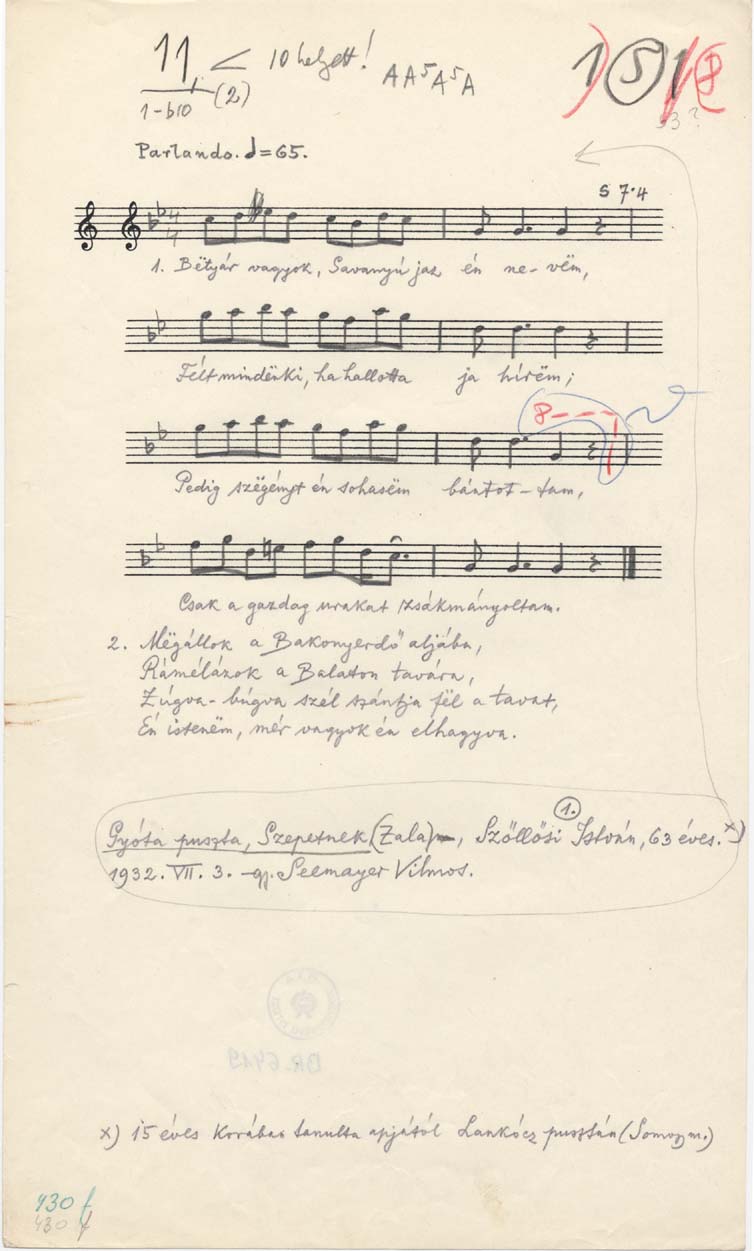 11 < 10 helyett! AA⁵A⁵A 1 5 1
1-b10 (2)
53?
Parlando. ♩=65.
S 7·4
4
4
1. Bëtyár vagyok, Savanyú jaz én ne-vëm,
Félt mindënki, ha hallotta ja hírëm;
8
Pedig szëgényt én sohasëm bántot-tam,
Csak a gazdag urakat zsákmányoltam.
2. Mëgállok a Bakonyerdő aljába,
Rámélázok a Balaton tavára,
Zúgva-búgva szél szántja fël a tavat,
Én istenëm, mér vagyok én elhagyva.
1.
Gyóta puszta, Szepetnek (Zala), Szőllősi István, 63 éves. x)
1932. VII. 3. gy. Seemayer Vilmos.
BR. 6419
x) 15 éves korában tanulta apjától Lankócz pusztán (Somogym.)
430 f
430